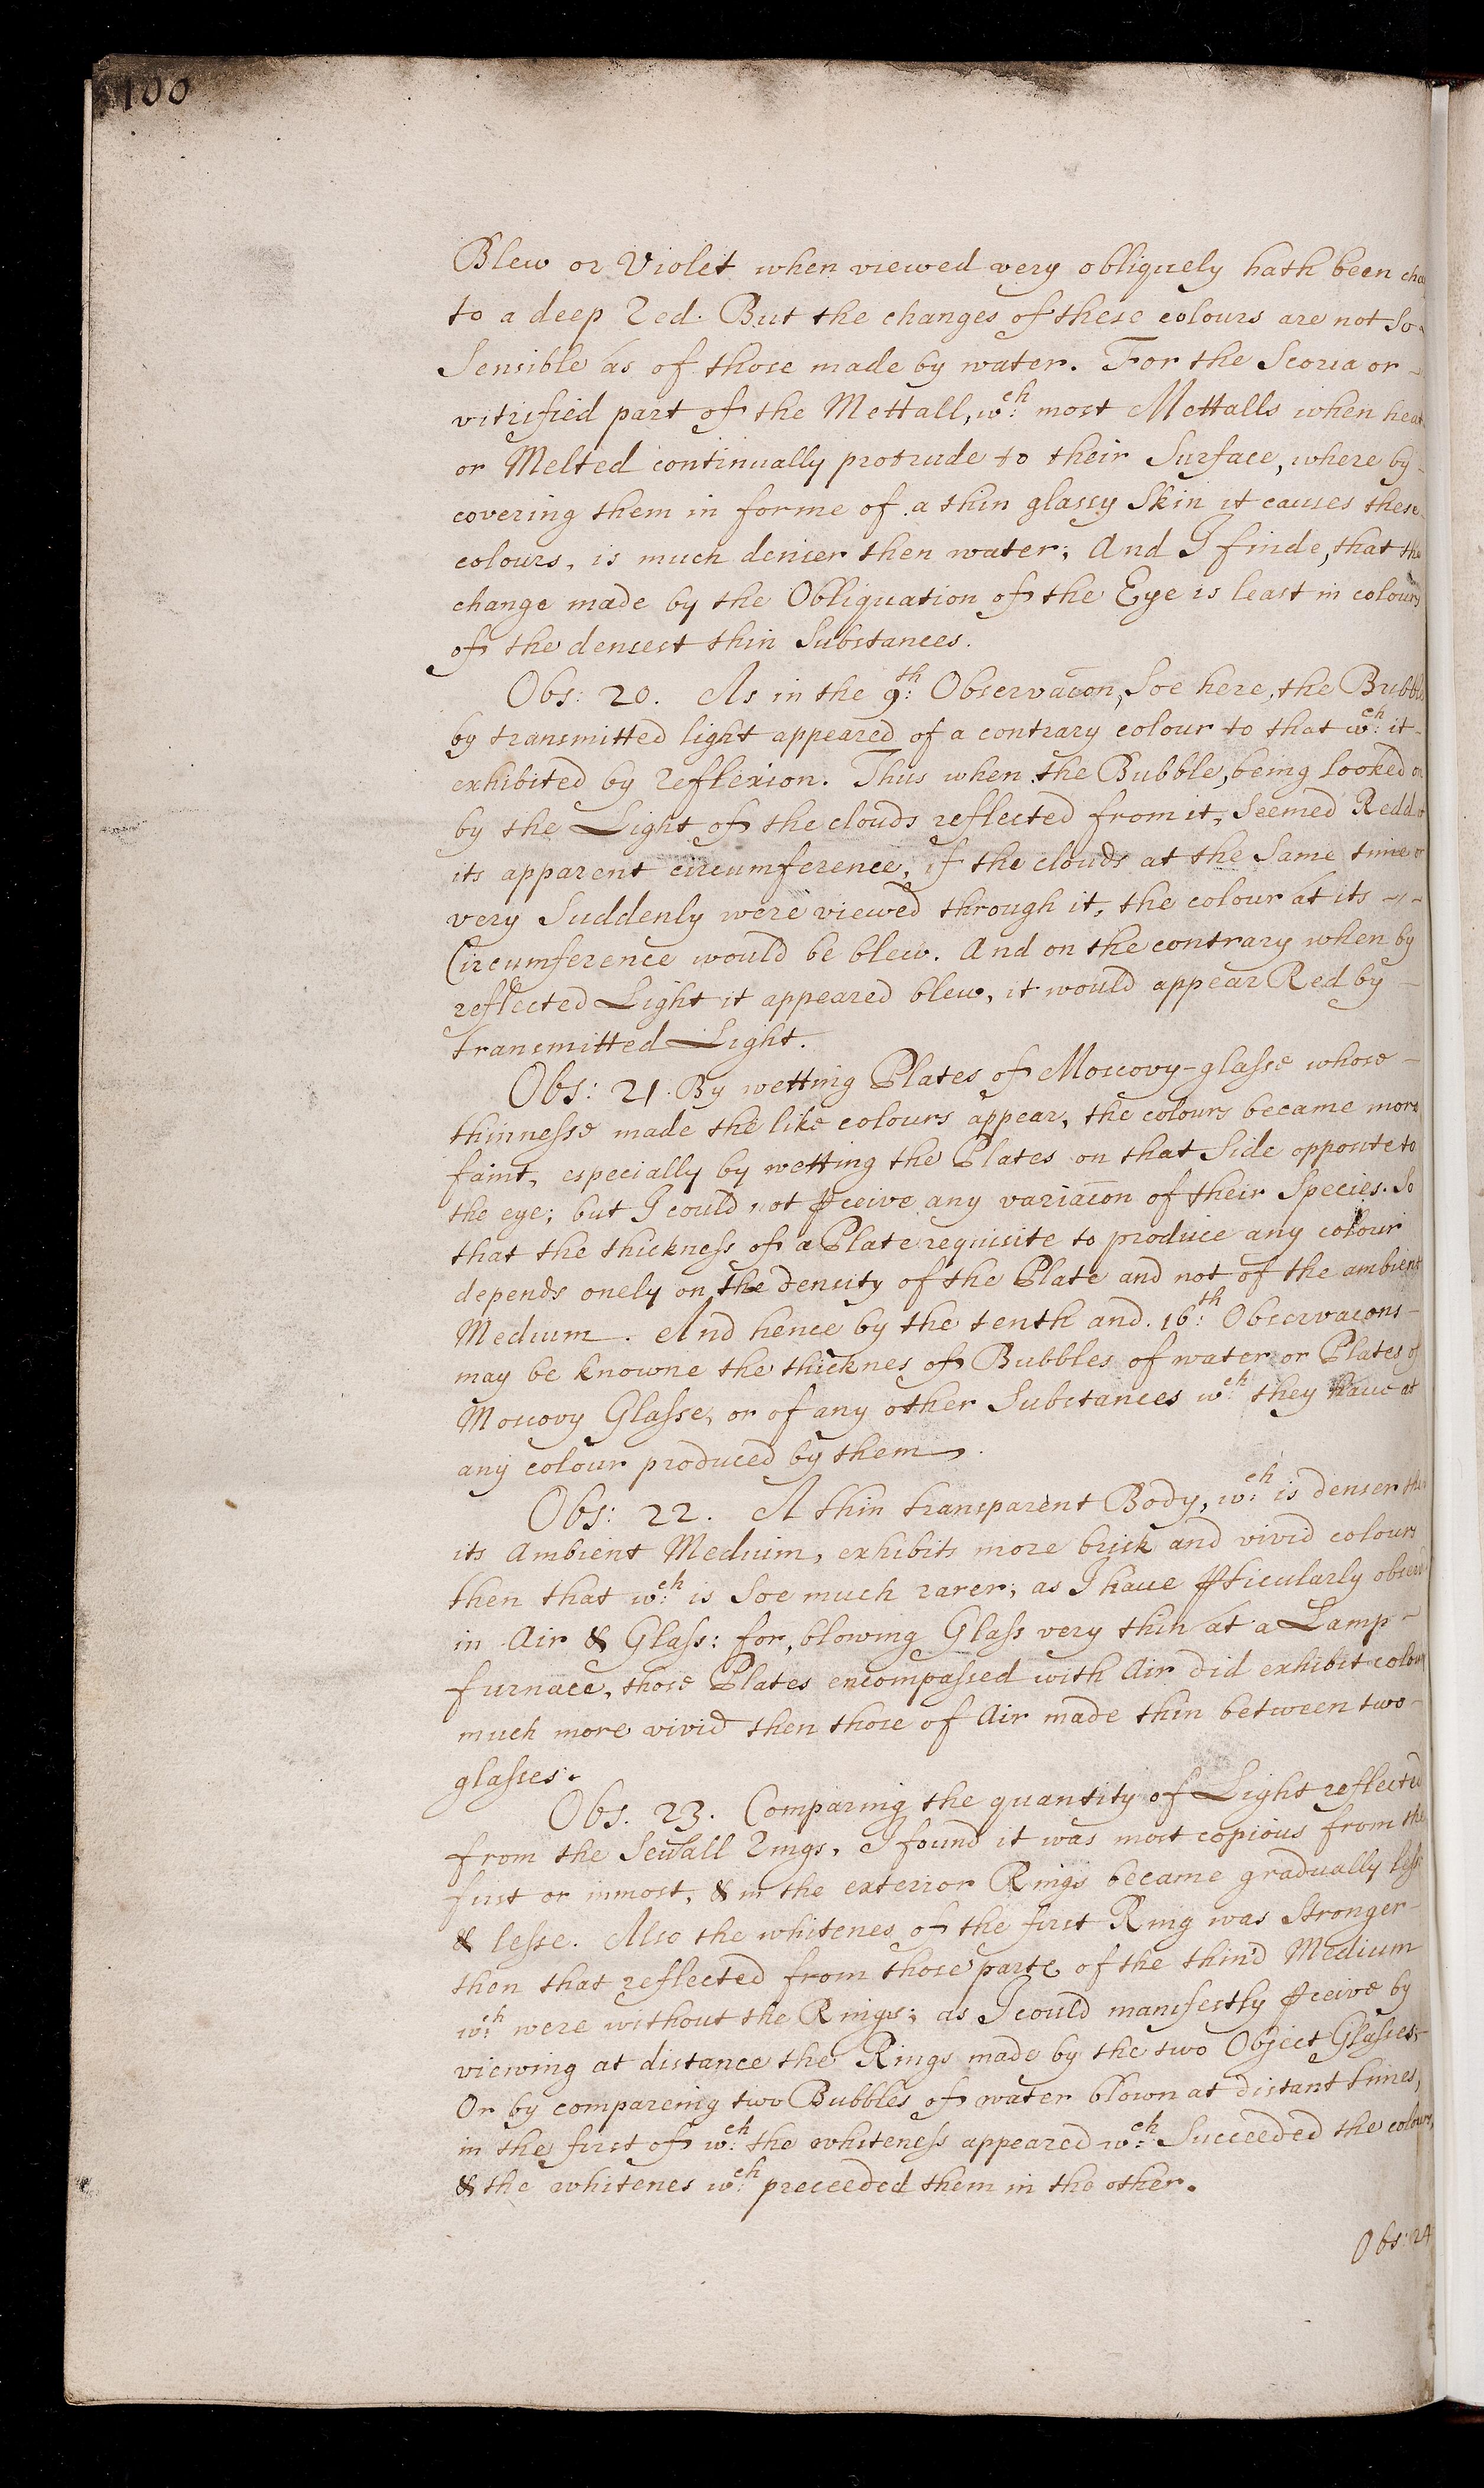 100
Blew or Violet when viewed very obliquely hath been
to a deep Red. But the changes of these colours are not So
Sensible as of those made by water. For the Scoria or
vitrified part of the Mettall, wch: most Mettalls when
or Melted continually protrude to their Surface, where by
covering them in forme of a thin glassy Skin it causes these
colours, is much denser then water; And I finde, that the
change made by the Obliquation of the Eye is least in colours
of the densest thin Substances.
Obs: 20. As in the 9th: Observacon, Soe here, the Bubble
by transmitted light appeared of a contrary colour to that wch: it
exhibited by reflexion. Thus when the Bubble, being looked on
by the Light of the clouds reflected from it, Seemed Redd
its apparent circumference, if the clouds at the Same time
very Suddenly were viewed through it, the colour at its
Circumference would be blew. And on the contrary when by
reflected Light it appeared blew, it would appear Red by
transmitted Light.
Obs: 21. By wetting Plates of Moscovy-glasse whose
thinnesse made the like colours appear, the colours became more
faint, especially by wetting the Plates on that Side opposite to
the eye; but I could not ꝑceive any variacon of their Species. So
that the thickness of a Plate requisite to produce any colour
depends onely on the density of the Plate and not of the ambient
Medium. And hence by the tenth and 16th: Observacons
may be knowne the thicknes of Bubbles of water or Plates of
Moscovy Glasse, or of any other Substances wch they have at
any colour produced by them.
Obs: 22. A thin transparent Body, wch: is denser then
its Ambient Medium, exhibits more brisk and vivid colours
then that wch: is Soe much rarer; as I have ꝑticularly
in Air & Glass: for, blowing Glass very thin at a Lamp-
furnace, those Plates encompassed with Air did exhibit colours
much more vivid then those of Air made thin between two
glasses.
Obs. 23. Comparing the quantity of Light reflected
from the Sevall Rings, I found it was most copious from the
first or inmost, & in the exterior Rings became gradually less
& lesse. Also the whitenes of the first Ring was Stronger
then that reflected from those parts of the thin'd Medium
wch: were without the Rings; as I could manifestly ꝑceive by
viewing at distance the Rings made by the two Object Glasses
Or by compareing two Bubbles of water blown at distant times,
in the first of wch: the whiteness appeared wch: Succeeded the colours,
& the whitenes wch: preceeded them in the other.
Obs: 24